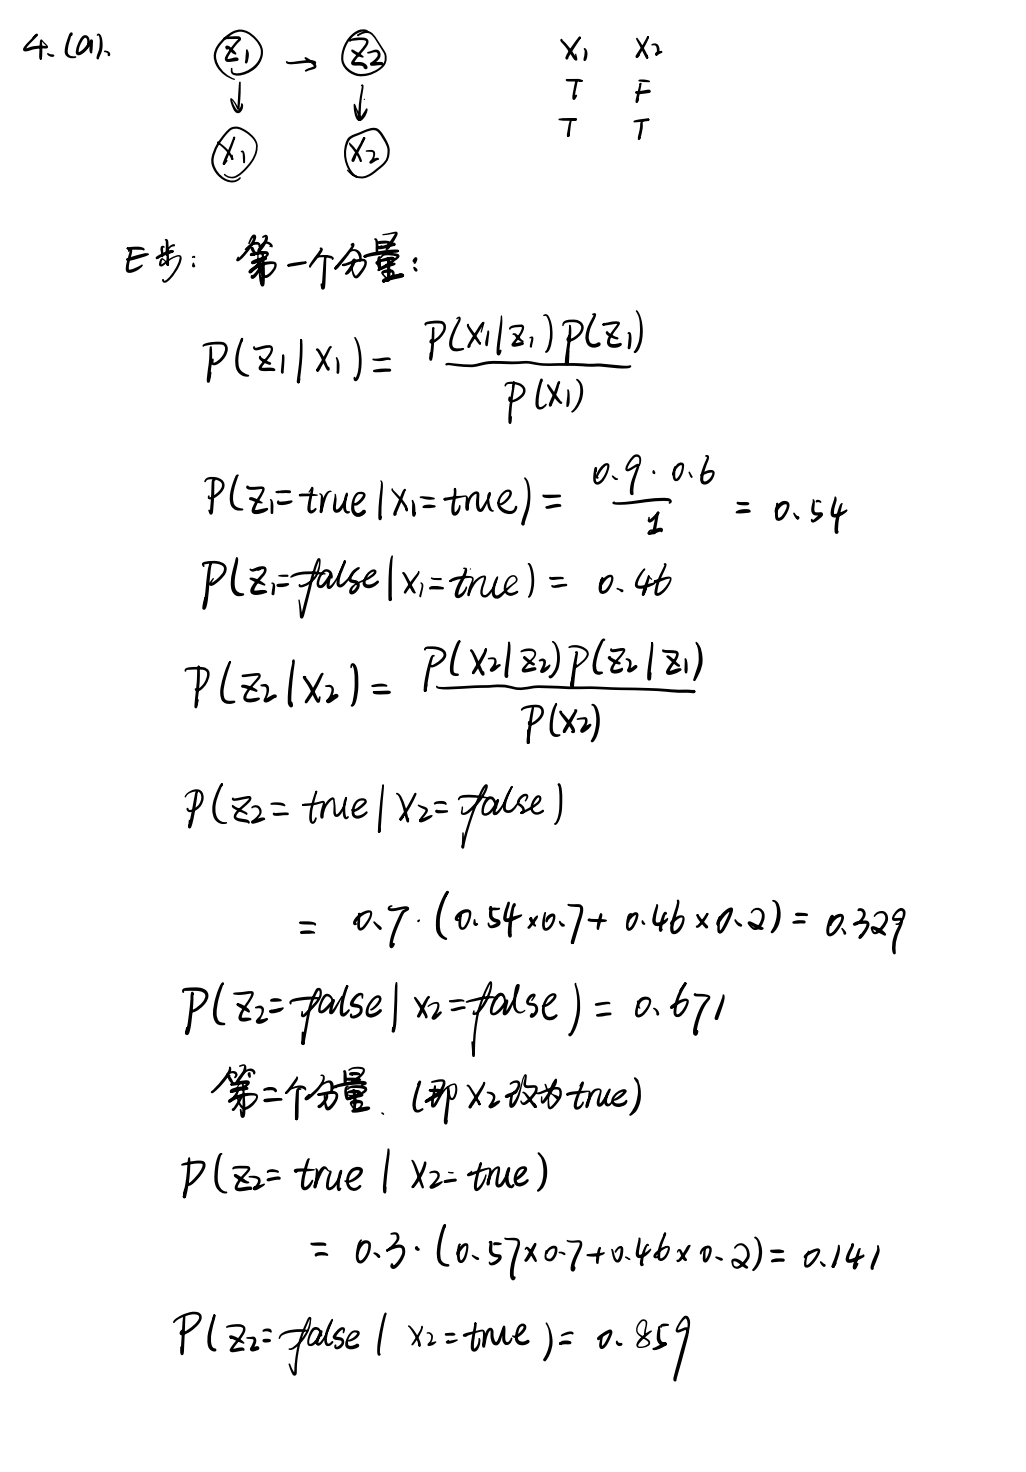 4.(a).
Z1 → Z2
X1 X2
X1 X2
T F
T T
E步: 第一个分量:
P(Z1|X1) = P(X1|Z1)P(Z1) / P(X1)
P(Z1=true|X1=true) = 0.9·0.6 / 1 = 0.54
P(Z1=false|X1=true) = 0.46
P(Z2|X2) = P(X2|Z2)P(Z2|Z1) / P(X2)
P(Z2=true|X2=false)
= 0.7·(0.54×0.7+0.46×0.2) = 0.329
P(Z2=false|X2=false) = 0.671
第二个分量. (即X2改为true)
P(Z2=true|X2=true)
= 0.3·(0.57×0.7+0.46×0.2) = 0.141
P(Z2=false|X2=true) = 0.859